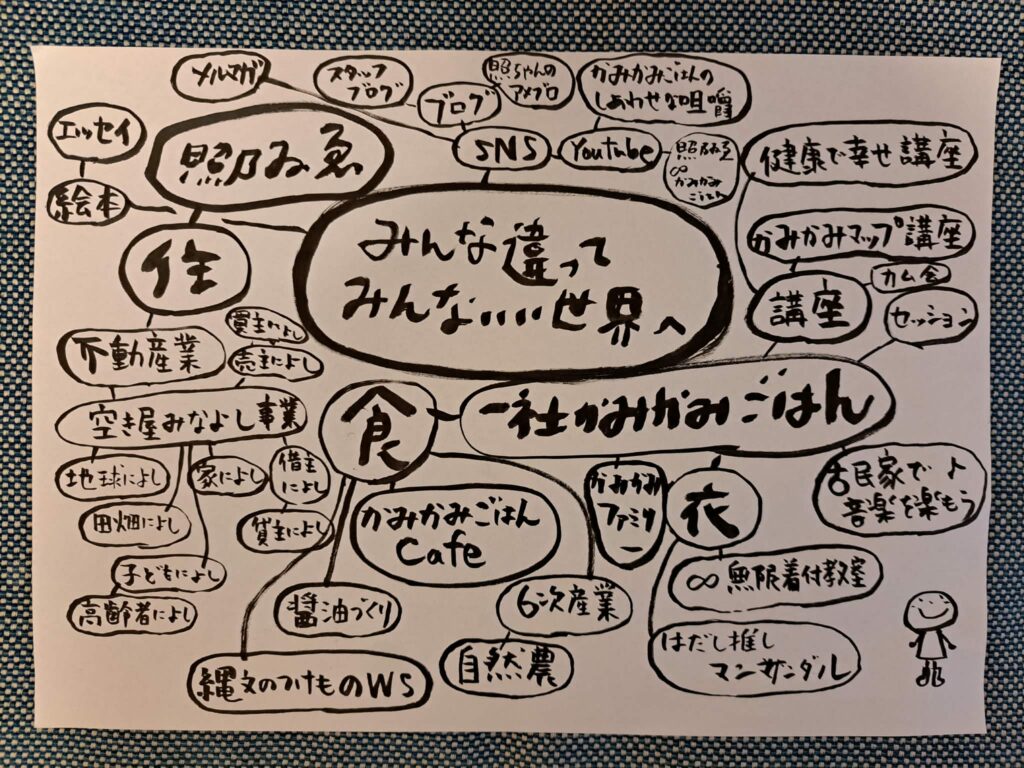 メルマガ
スタッフ
ブログ
ブログ
照ちゃんの
アメブロ
かみかみごはんの
しあわせな咀嚼
エッセイ
絵本
SNS
Youtube
∞
かみかみ
ごはん
健康で幸せ講座
かみかみマップ講座
カム会
講座
セッション
みんな違って
みんないいい世界へ
住
不動産業
買主によし
売主によし
空き屋みなよし事業
地球によし
家によし
借主
によし
田畑によし
貸主によし
子どもによし
高齢者によし
食
一社かみかみごはん
かみかみごはん
Cafe
かみかみ
ファミリー
衣
古民家で♪
音楽を楽もう
∞無限着付教室
醤油づくり
6次産業
自然農
縄文のつけものWS
はだし推し
マンサンダル